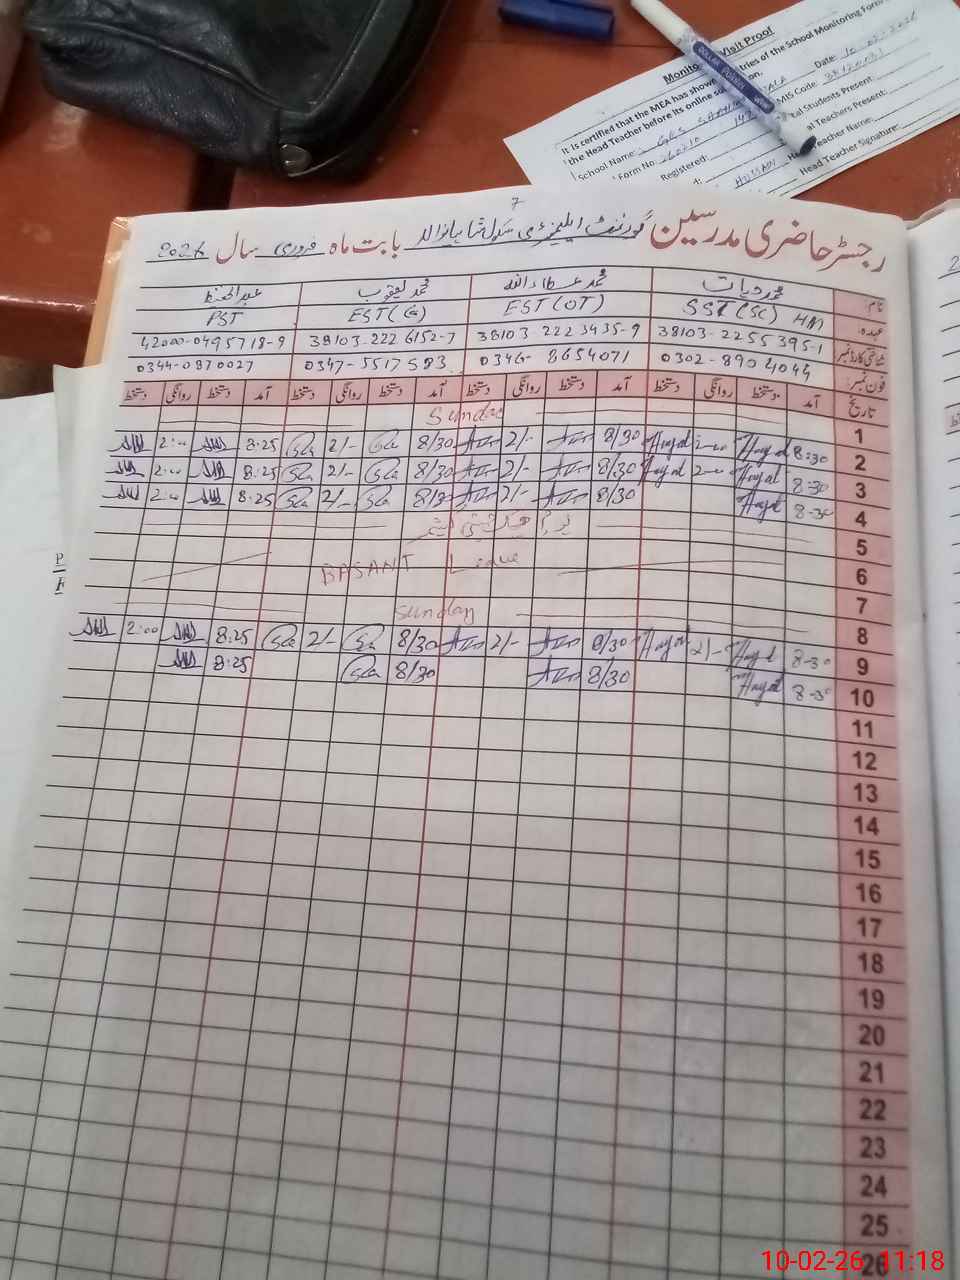 Monitoring Visit Proof
It is certified that the MEA has showed entries of the School Monitoring Form
the Head Teacher before its online
School Name: GES
Date: 10-02-2026
Form No.
MIS Code:
Registered:
Students Present:
Teachers Present:
Teacher Name:
Head Teacher Signature:
7
رجسٹر حاضری مدرسین گورنمنٹ ایلیمنٹری سکول شاہانوالہ بابت ماہ فروری سال 2026
نام: محمد حیات محمد عطاء اللہ محمد یعقوب عبدالحفیظ
عہدہ: SST (SC) HM EST (OT) EST (G) PST
شناختی کارڈ نمبر 38103-2255395-1 38103-2223435-9 38103-2226152-7 42000-0495718-9
فون نمبر: 0302-8904044 0346-8654071 0347-5517583 0344-0870027
تاریخ آمد دستخط روانگی دستخط آمد دستخط روانگی دستخط آمد دستخط روانگی دستخط آمد دستخط روانگی دستخط
1 Sunday
2 8:30 Hayat 2-00 Hayat 8/30 2/- 8/30 2/- 8:25 2:00
3 8:30 Hayat 2-00 Hayat 8/30 2/- 8/30 2/- 8:25 2:00
4 8-30 Hayat 8/30 2/- 8/3 2/- 8:25 2:00
5
6 BASANT Leave
7
8 Sunday
9 8-30 Hayat 2/- Hayat 8/30 2/- 8/30 2/- 8:25 2:00
10 8-30 Hayat 8/30 8/30 8:25
11
12
13
14
15
16
17
18
19
20
21
22
23
24
25
26
10-02-26 11:18